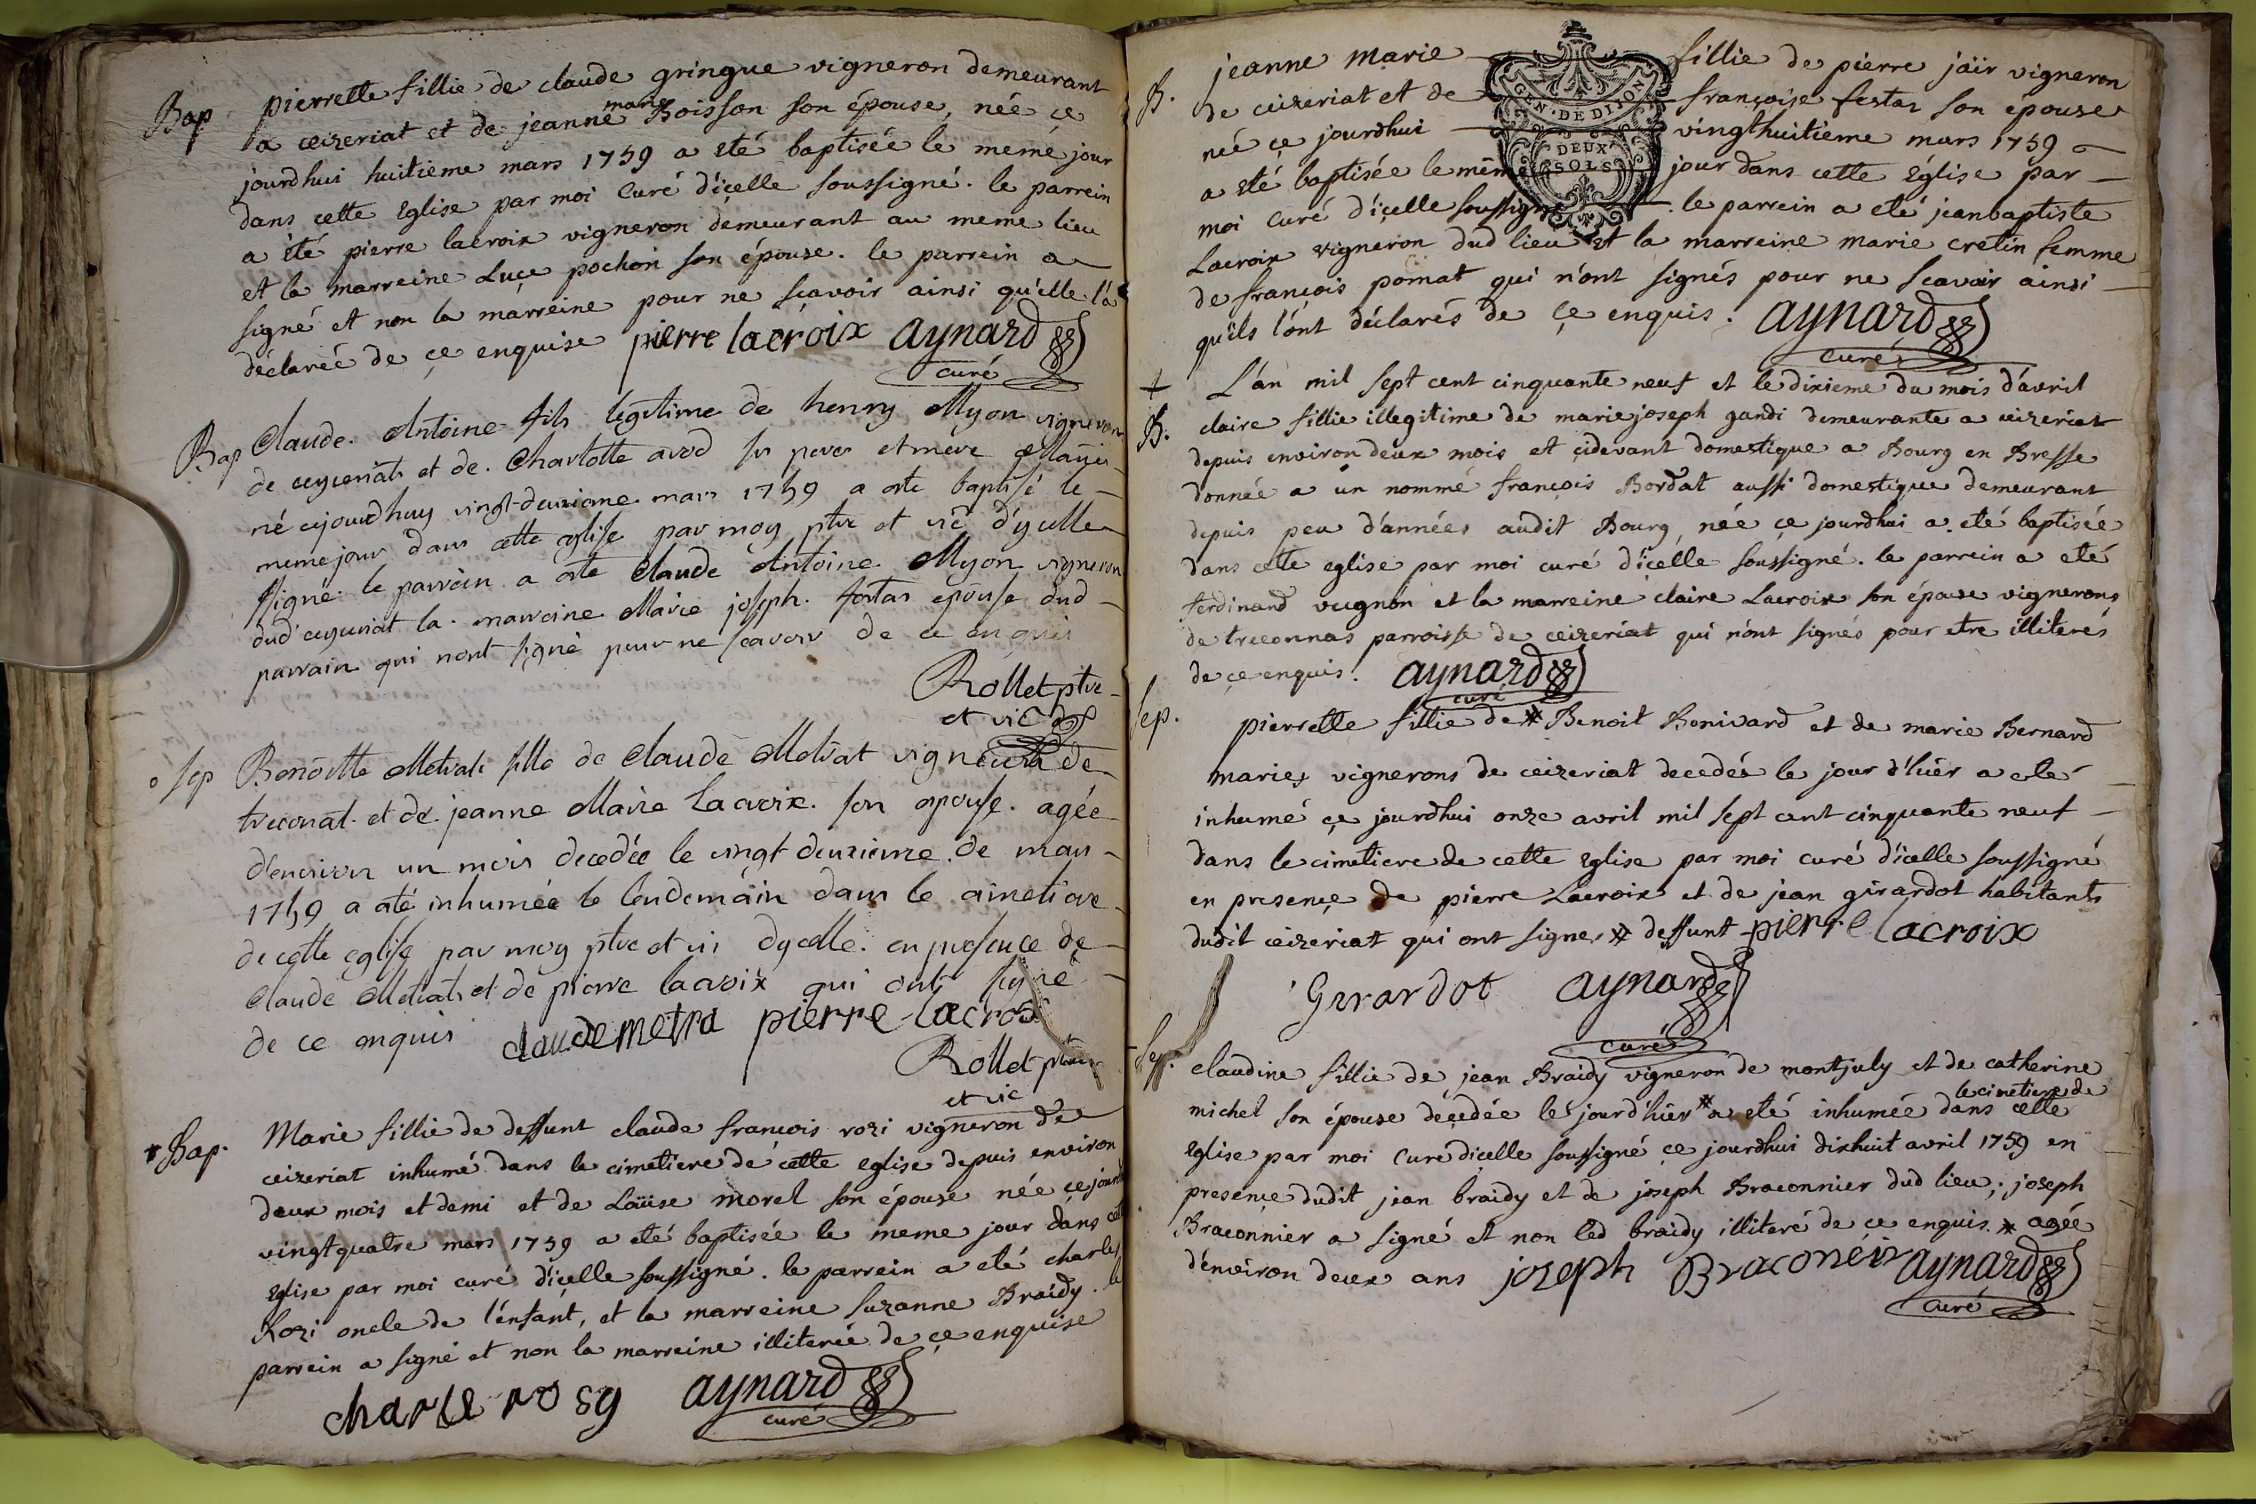 Bap pierrette fillie de claude gringue vigneron demeurant
a ceizeriat et de jeanne marie Boisson son épouse, née ce
jourdhui huitieme mars 1759 a eté baptisée le meme jour
dans cette Eglise par moi Curé d'içelle soussigné. le parrein
a été pierre lacroix vigneron demeurant au meme lieu
et la marreine Luçe pochon son épouse. le parrein a
signé et non la marreine pour ne sçavoir ainsi qu'elle l'a
déclarée de çe enquise pierre lacroix aynard
curé
Bap Claude Antoine fils légitime de henry Myon vigneron
de ceyzeriat et de Charlotte avod ses pere et mère Mariés
né cejourdhuy vingt-deuxieme mars 1759 a été baptisé le
meme jour dans cette eglise par moy ptre et vic d'ycelle
signé. le parrain a ete Claude Antoine Myon vigneron
dud ceyzeriat la marraine Marie joseph festas épouse dud
parrain qui nont signé pour ne scavoir de ce enquis
Rollet ptre
et vic
Sep Benoitte Metrat fille de Claude Metrat vigneron de
treconat et de jeanne Marie Lacroix son epouse agée
d'environ un mois decedée le vingt deuxieme de mars
1759 a até inhumée le lendemain dans le cimetiere
de cette eglise par moy ptre et vi dycelle en presence de
Claude Metrat et de pierre lacroix qui ont signé
de ce enquis claude metra pierre lacroix
Rollet ptre
et vic
Bap. Marie fillie de deffunt claude françois rozi vigneron de
ceizeriat inhumé dans le cimetiere de cette eglise depuis environ
deux mois et demi et de Loüise morel son épouse née ce jourdhui
vingtquatre mars 1759 a eté baptisée le meme jour dans cette
Eglise par moi curé d'içelle soussigné. le parrein a eté charles
Rozi oncle de l'énfant, et la marreine suzanne Braidy. le
parrein a signé et non la marreine illiterée de çe enquise
charle rosy aynard
curé
GEN. DE DIJON
DEUX
SOLS
B. jeanne marie fillie de pierre jaïr vigneron
de ceizeriat et de françoise festas son épouse
née çe jourdhui vingthuitieme mars 1759
a eté baptisée le même jour dans cette église par
moi curé d'içelle soussigné. le parrein a eté jeanbaptiste
Lacroix vigneron dud lieu et la marreine marie cretin femme
de françois pomat qui n'ont signés pour ne scavoir ainsi
qu'ils l'ont déclarés de çe enquis. aynard
curé
B. L'an mil sept cent cinquante neuf et le dixieme du mois d'avril
claire fillie illegitime de mariejoseph gandi demeurante a ceizeriat
depuis environ deux mois et cidevant domestique a Bourg en Bresse
donnée a un nommé françois Bordat aussi domestique demeurant
depuis peu d'années audit Bourg, née çe jourdhui a eté baptisée
dans cette eglise par moi curé d'içelle soussigné. le parrein a eté
ferdinand vugnon et la marreine claire Lacroix son épouse vignerons
de treconnas parroisse de ceizeriat qui n'ont signés pour etre illiterés
de çe enquis. aynard
curé
Sep. pierrette fillie de * Benoit Bonivard et de marie Bernard
mariés vignerons de ceizeriat decedés le jour d'hier a eté
inhumé çe jourdhui onze avril mil sept cent cinquante neuf
dans le cimetiere de cette Eglise par moi curé d'icelle soussigné
en presençe de pierre Lacroix et de jean girardot habitants
dudit ceizeriat qui ont signés * deffunt pierre lacroix
Girardot aynard
curé
Sep. claudine fillie de jean Braidy vigneron de montjuly et de catherine
michel son épouse déçedée le jourd'hier * a eté inhumée dans le cimetiere de cette
Eglise par moi Curé d'içelle soussigné çe jourdhui dixhuit avril 1759 en
presençe dudit jean braidy et de joseph Braconnier dud lieu; joseph
Braconnier a signé et non led braidy illiteré de çe enquis. * agée
d'énviron deux ans joseph Braconeir aynard
curé